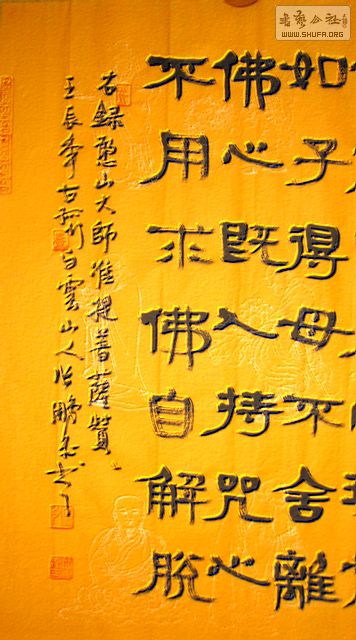 書藝公社
WWW.SHUFA.ORG
如子得母不舍離
佛心既入持咒心
不用求佛自解脫
右録憨山大師准提菩薩贊
壬辰年古白雲山人張鵬書